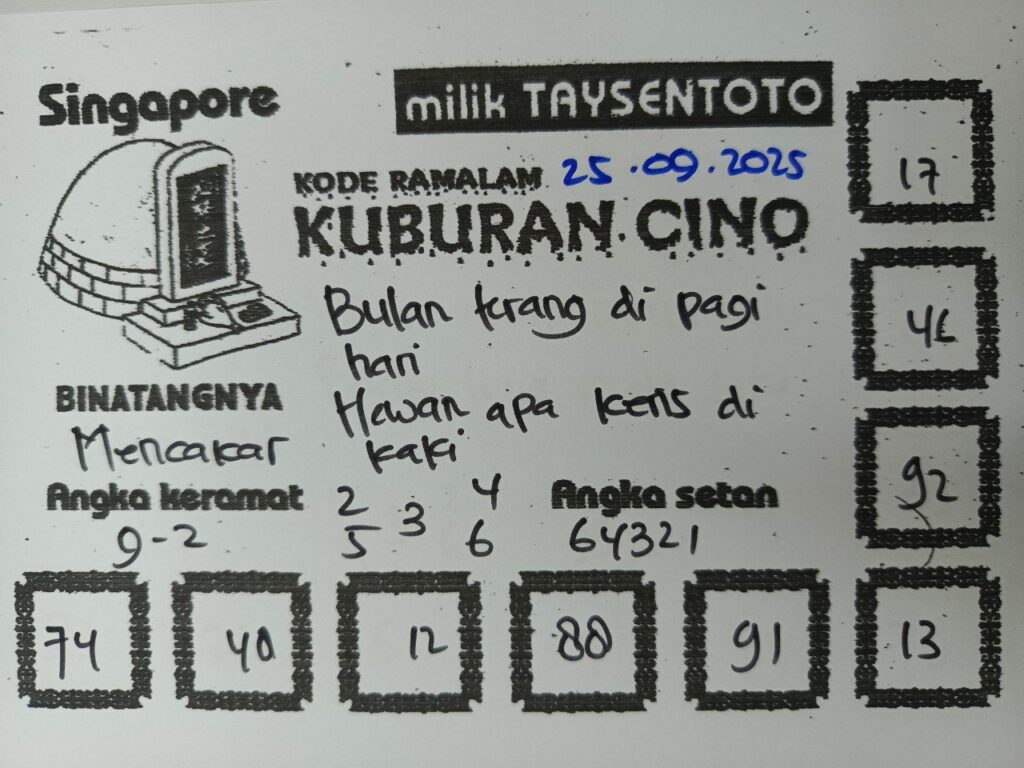 Singapore
milik TAYSENTOTO
KODE RAMALAM 25.09.2025
KUBURAN CINO
Bulan terang di pagi
hari
Hewan apa keris di
kaki
BINATANGNYA
Mencakar
Angka keramat
9-2
2 4
3
5 6
Angka setan
64321
17
92
74
40
12
88
91
13